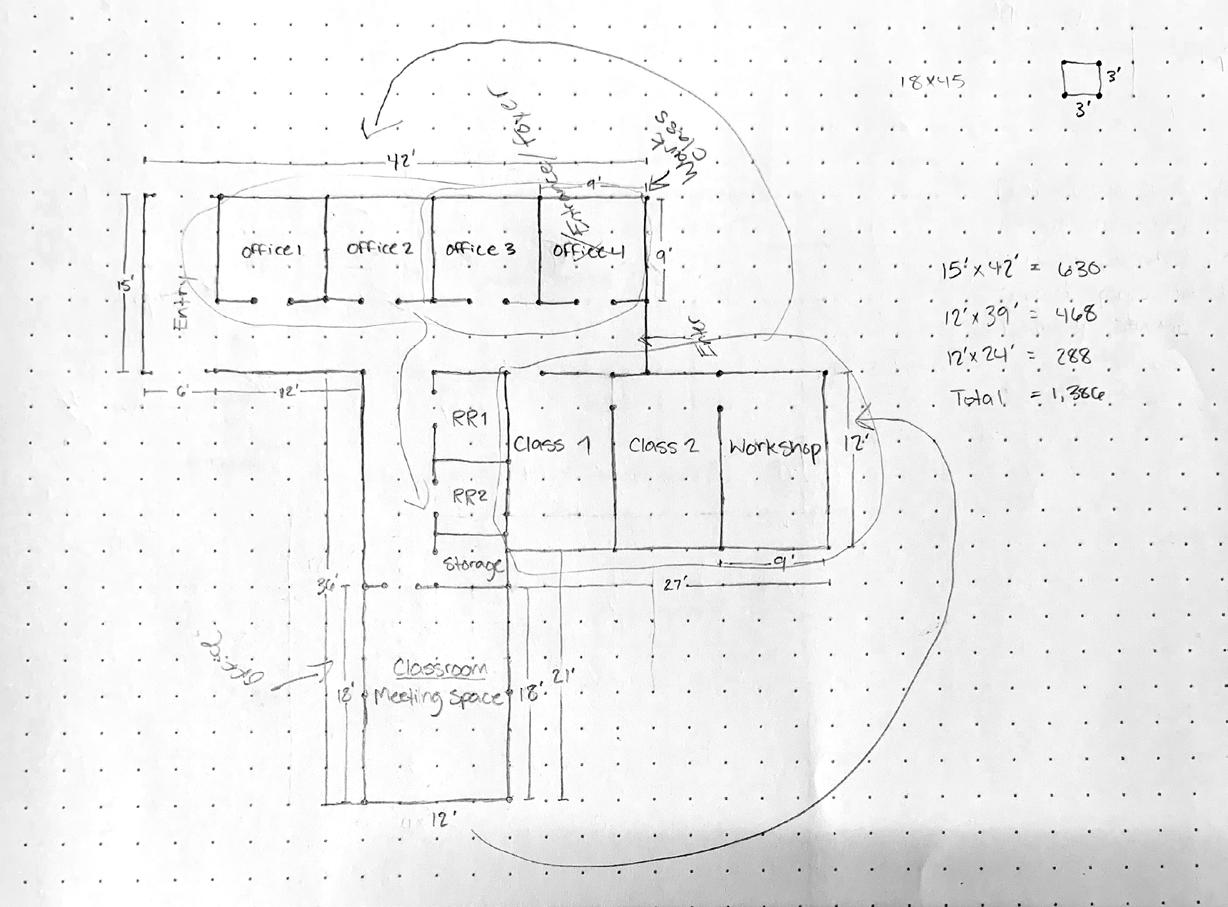 18x45
3'
3'
Entrance/Foyer
Work
Class
42'
9'
15'
Entry
Office 1
Office 2
Office 3
Office 4
9'
Enter
15' x 42' = 630
12' x 39' = 468
12' x 24' = 288
Total = 1,386
6'
12'
RR1
Class 1
Class 2
Workshop
12'
RR2
Storage
9'
36'
27'
Office
Classroom
Meeting Space
18'
18'
21'
12'